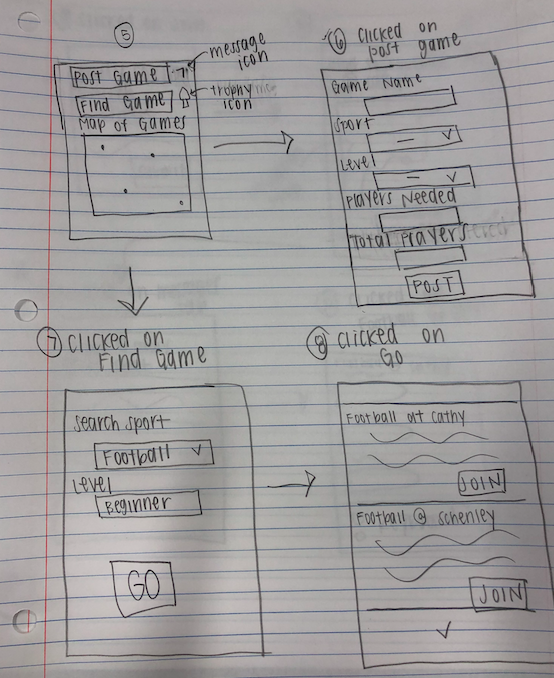 5
Post Game
message
icon
Find Game
trophy
icon
Map of Games
6 clicked on
post game
Game Name
Sport
Level
Players Needed
Total Players
POST
7 clicked on
Find Game
Search sport
Football
Level
Beginner
GO
8 clicked on
Go
Football at Cathy
JOIN
Football @ Schenley
JOIN